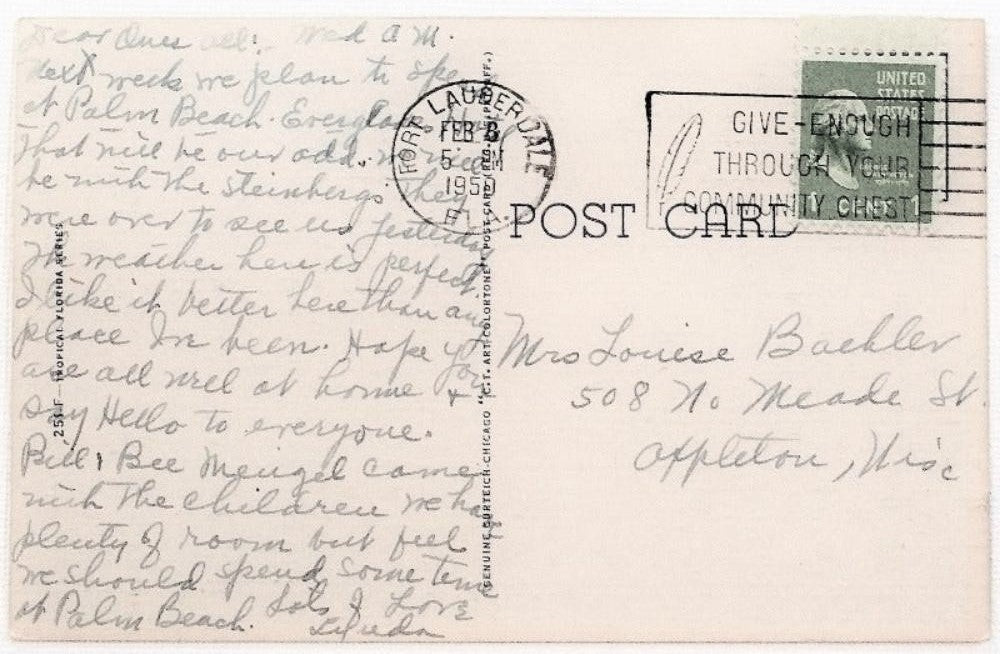 Dear Ones all: Wed A M.
Next week we plan to spend
at Palm Beach. Everglades Hotel
That will be our add.
be with the Steinbergs They
were over to see us yesterday
The weather here is perfect
I like it better here than any
place Ive been. Hope you
are all well at home +
Say Hello to everyone.
Bill & Bee Mengel came
with the children we have
plenty of room but feel
we should spend some time
at Palm Beach. Lots of Love
255-F—TROPICAL FLORIDA SERIES
GENUINE CURTEICH-CHICAGO "C.T. ART-COLORTONE" POST CARD (REG. U.S. PAT. OFF.)
FORT LAUDERDALE
FEB 8
5 PM
1950
FLA.
GIVE-ENOUGH
THROUGH YOUR
COMMUNITY CHEST
UNITED
STATES
POSTAGE
1 CENT 1
POST CARD
Mrs Louise Bachler
508 No Meade St.
Appleton, Wisc